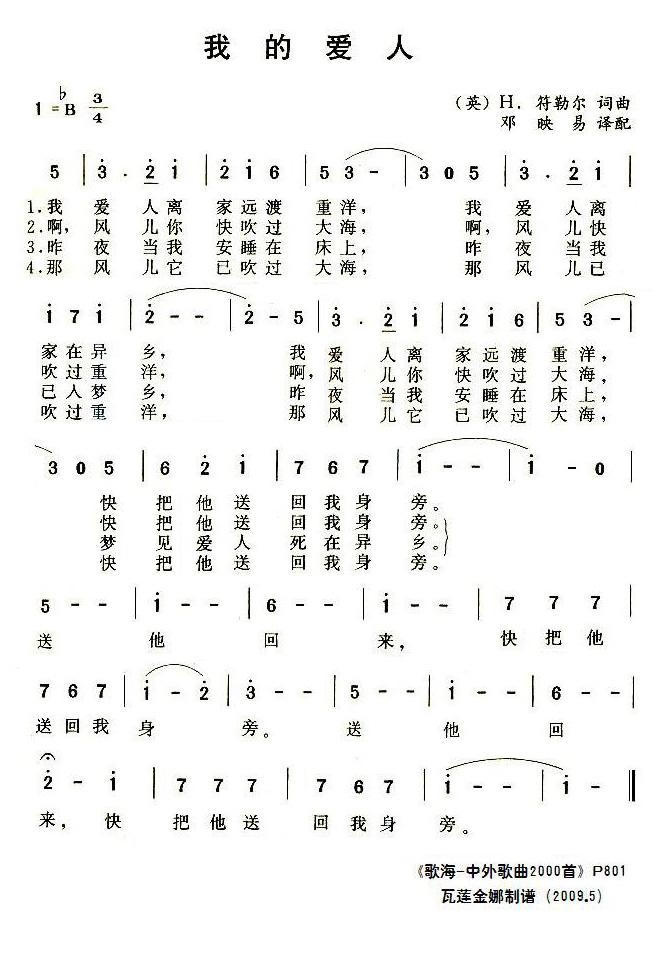 我的爱人
1=♭B 3/4
（英）H．符勒尔 词曲
邓映易 译配
5 | 3 · 2 1 | 2 1 6 | 5 3 - | 3 0 5 | 3 · 2 1 |
1.我 爱 人离 家远渡 重洋， 我 爱 人离
2.啊，风 儿你 快吹过 大海， 啊，风 儿快
3.昨 夜 当我 安睡在 床上， 昨 夜 当我
4.那 风 儿它 已吹过 大海， 那 风 儿已
1 7 1 | 2 - - | 2 - 5 | 3 · 2 1 | 2 1 6 | 5 3 - |
家在异 乡， 我 爱 人离 家远渡 重洋，
吹过重 洋， 啊，风 儿你 快吹过 大海，
已人梦 乡， 昨 夜 当我 安睡在 床上，
吹过重 洋， 那 风 儿它 已吹过 大海，
3 0 5 | 6 2 1 | 7 6 7 | 1 - - | 1 - 0 |
快 把他送 回我身 旁。
快 把他送 回我身 旁。
梦 见爱人 死在异 乡。
快 把他送 回我身 旁。
5 - - | 1 - - | 6 - - | 1 - - | 7 7 7 |
送 他 回 来， 快把他
7 6 7 | 1 - 2 | 3 - - | 5 - - | 1 - - | 6 - - |
送回我 身 旁。 送 他 回
2 - 1 | 7 7 7 | 7 6 7 | 1 - - | 1 - ‖
来， 快 把他送 回我身 旁。
《歌海-中外歌曲2000首》P801
瓦莲金娜制谱（2009.5）